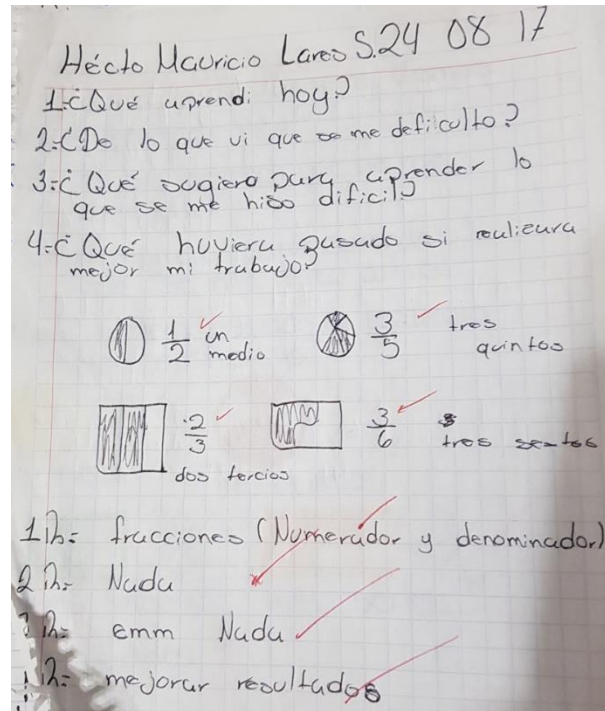 Hécto Mauricio Lares S. 24 08 17
1:¿Qué aprendi hoy?
2:¿De lo que vi que se me deficulto?
3:¿Qué sugiero para aprender lo
que se me hiso dificil?
4:¿Qué huviera pasado si realizara
mejor mi trabajo?
1/2 un medio 3/5 tres quintos
2/3 dos tercios 3/6 tres sextos
1R= fracciones (Numerador y denominador)
2R= Nada
3R= emm Nada
R= mejorar resultados